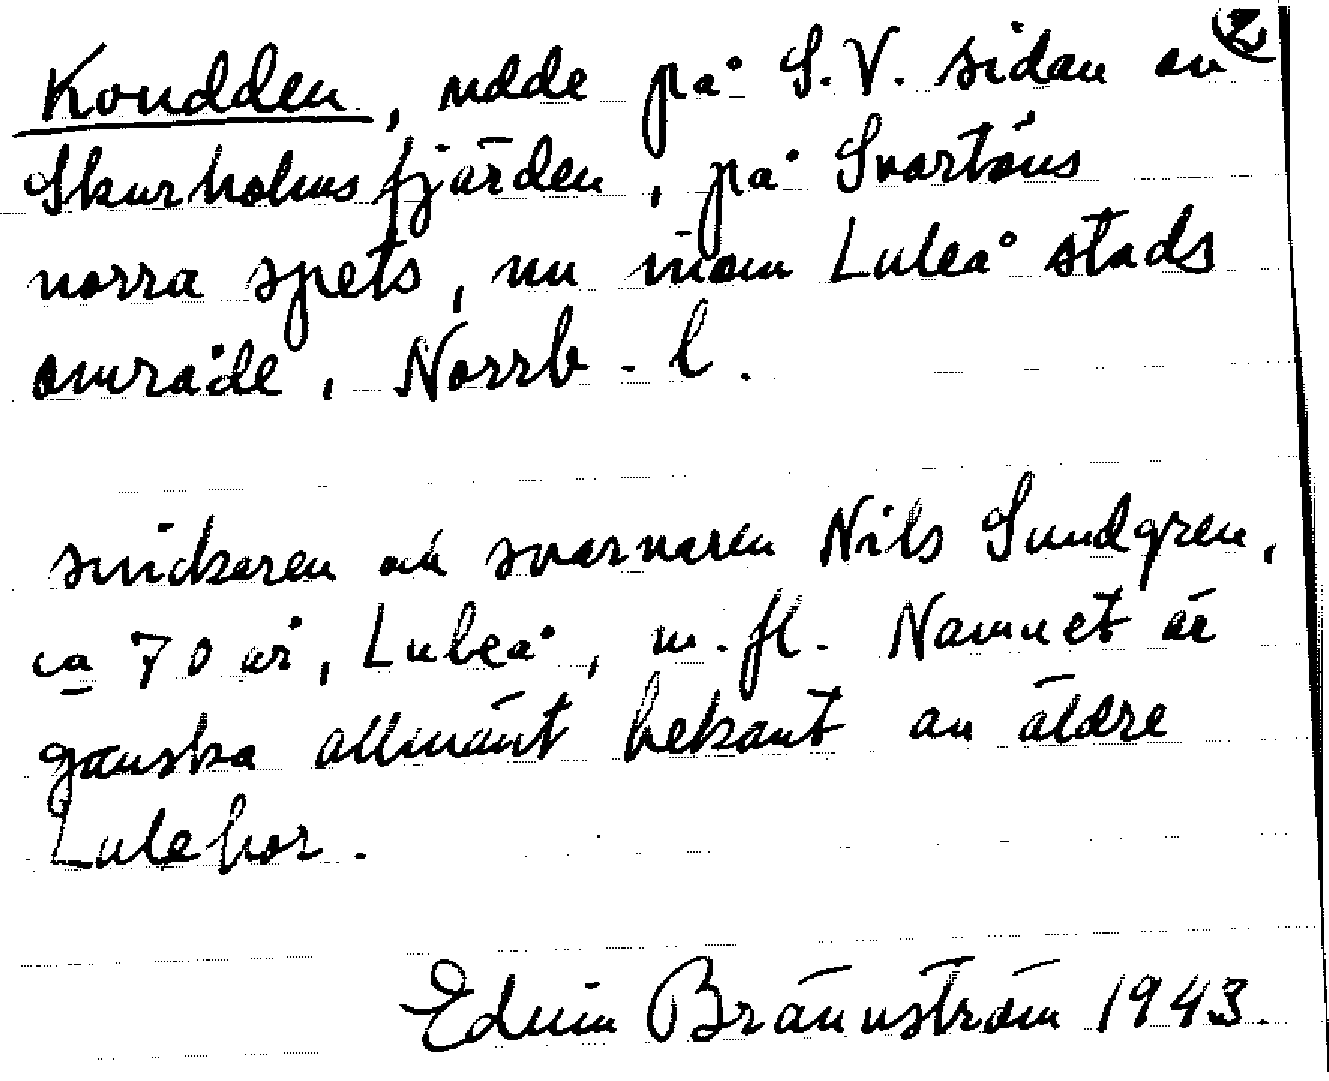 2
Koudden, udde på S.V. sidan av
Skurholmsfjärden, på Svartöns
norra spets, nu inom Luleå stads
område, Norrb. l.
snickaren och svarvaren Nils Sundgren,
ca 70 år, Luleå, m.fl. Namnet är
ganska allmänt bekant av äldre
Lulebor.
Edvin Brännström 1943.